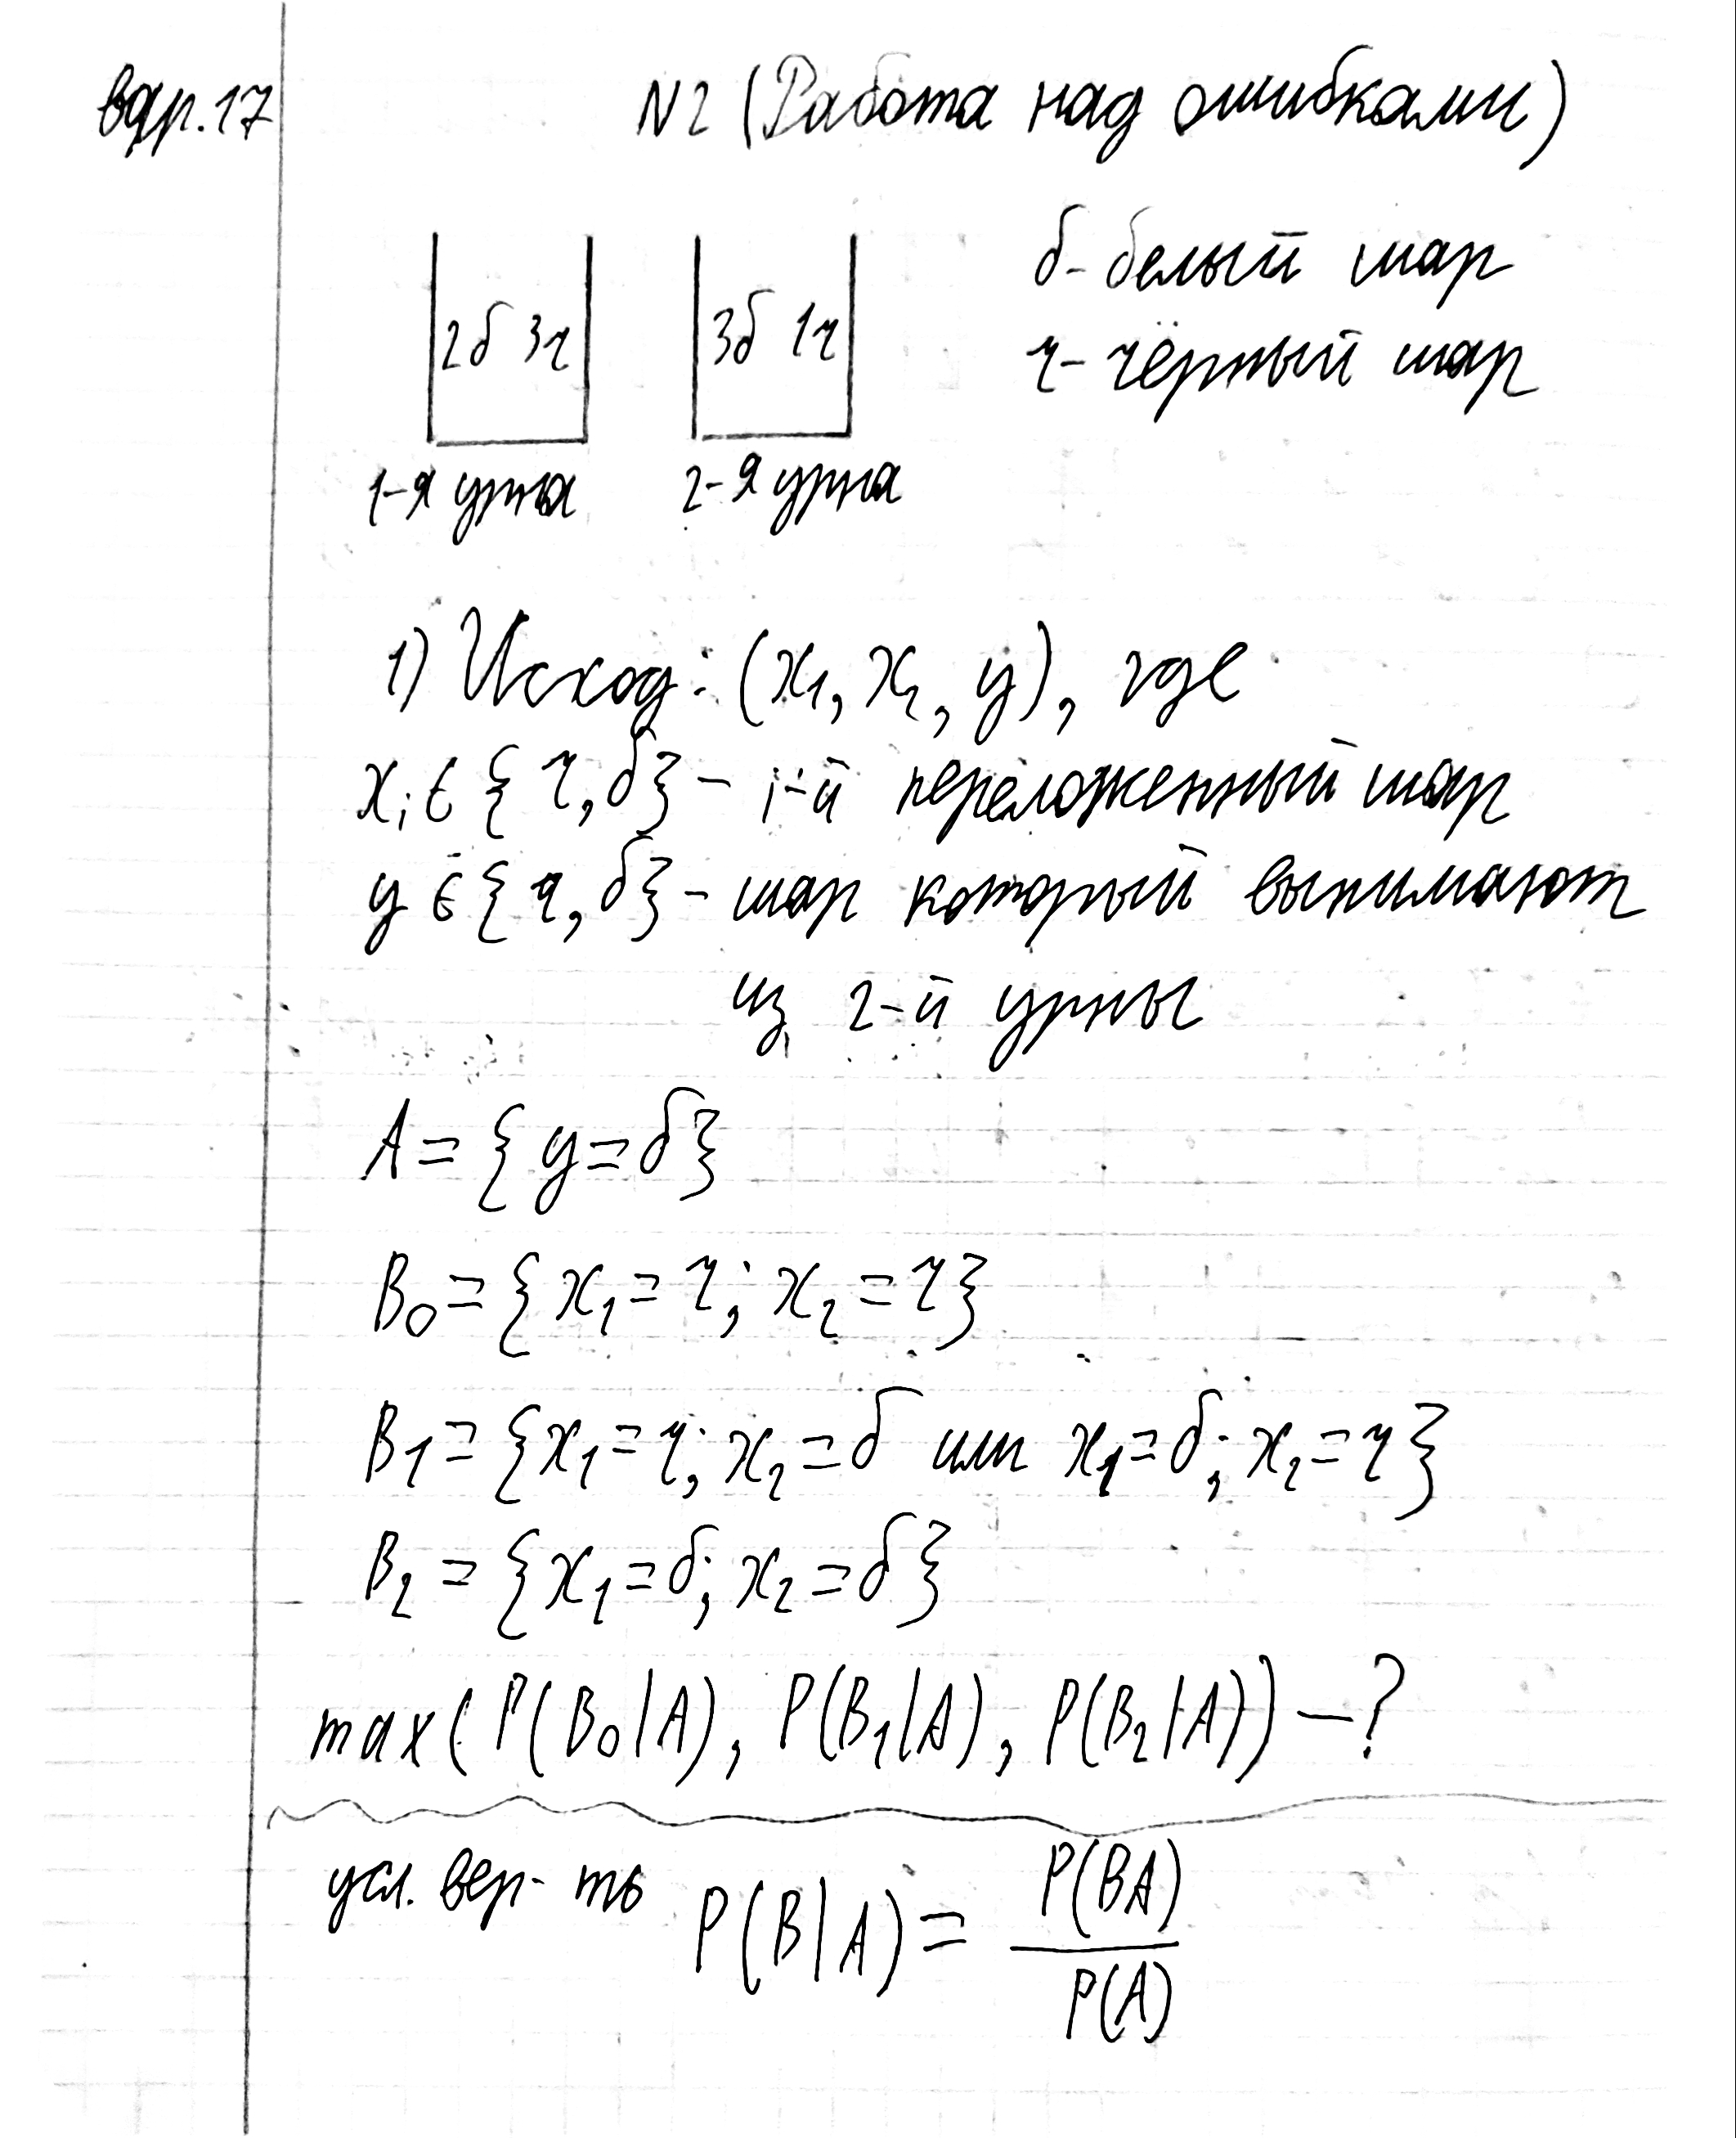 вар.17
N2 (Работа над ошибками)
2б 3ч
3б 1ч
б - белый шар
ч - чёрный шар
1-я урна
2-я урна
1) Исход: (x₁, x₂, y), где
xᵢ ∈ {ч, б} - i-й переложенный шар
y ∈ {ч, б} - шар который вынимают
из 2-й урны
A = {y = б}
B₀ = {x₁ = ч; x₂ = ч}
B₁ = {x₁ = ч; x₂ = б или x₁ = б; x₂ = ч}
B₂ = {x₁ = б; x₂ = б}
max(P(B₀|A), P(B₁|A), P(B₂|A)) - ?
усл. вер-ть P(B|A) = P(BA) / P(A)